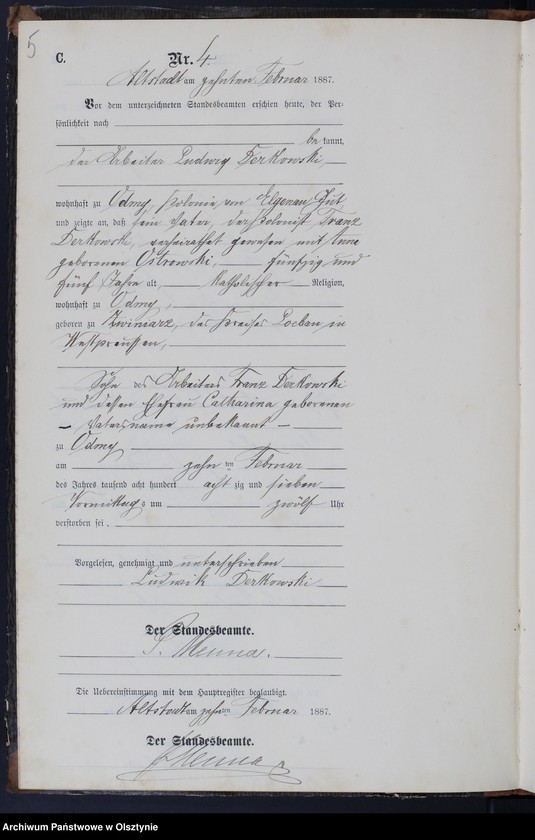 5
C.
Nr. 4.
Altstadt am zehnten Februar 1887.
Vor dem unterzeichneten Standesbeamten erschien heute, der Per-
sönlichkeit nach
be kannt,
der Arbeiter Ludwig Derkowski,
wohnhaft zu Odmy, Kolonie von Elgenau Gut
und zeigte an, daß sein Vater, der Kolonist Franz
Derkowski, verheirathet gewesen mit Anna
geborenen Ostrowski, fünfzig und
fünf Jahre alt, Katholischer Religion,
wohnhaft zu Odmy,
geboren zu Zwiniarz, des Kreises Loebau in
Westpreussen,
Sohn des Arbeiters Franz Derkowski
und dessen Ehefrau Catharina geborenen
– Vatersname unbekannt –
zu Odmy
am zehn ten Februar
des Jahres tausend acht hundert acht zig und sieben
Vormittags um zwölf Uhr
verstorben sei.
Vorgelesen, genehmigt und unterschrieben
Ludwik Derkowski
Der Standesbeamte.
Menna.
Die Uebereinstimmung mit dem Hauptregister beglaubigt.
Altstadt am zehnten Februar 1887.
Der Standesbeamte.
Menna
Archiwum Państwowe w Olsztynie